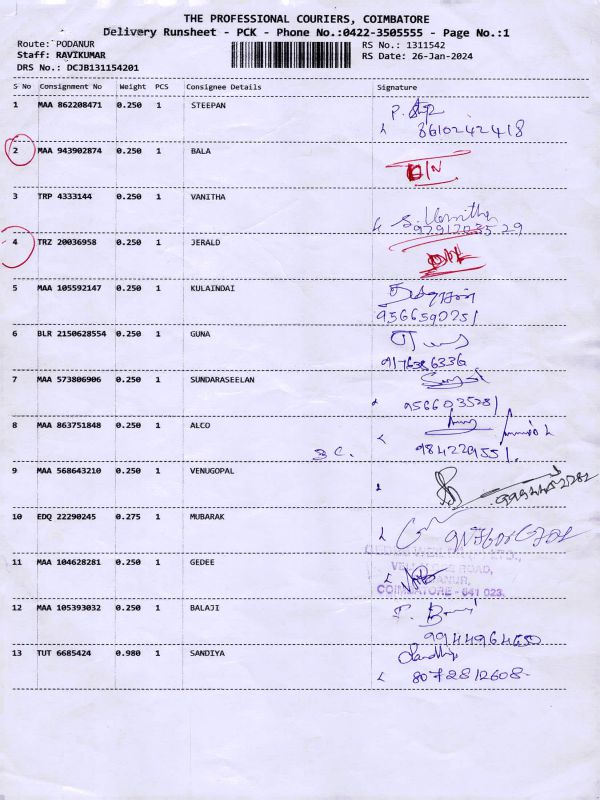 THE PROFESSIONAL COURIERS, COIMBATORE
Delivery Runsheet - PCK - Phone No.:0422-3505555 - Page No.:1
Route: PODANUR RS No.: 1311542
Staff: RAVIKUMAR RS Date: 26-Jan-2024
DRS No.: DCJB131154201
S No Consignment No Weight PCS Consignee Details Signature
1 MAA 862208471 0.250 1 STEEPAN
8610242418
2 MAA 943902874 0.250 1 BALA
3 TRP 4333144 0.250 1 VANITHA
S. Vanitha
4 TRZ 20036958 0.250 1 JERALD
5 MAA 105592147 0.250 1 KULAINDAI
9566590251
6 BLR 2150628554 0.250 1 GUNA
7 MAA 573806906 0.250 1 SUNDARASEELAN
9566035281
8 MAA 863751848 0.250 1 ALCO
9842229551.
9 MAA 568643210 0.250 1 VENUGOPAL
10 EDQ 22290245 0.275 1 MUBARAK
11 MAA 104628281 0.250 1 GEDEE
ROAD,
COIMBATORE - 641 023.
12 MAA 105393032 0.250 1 BALAJI
9944964650
13 TUT 6685424 0.980 1 SANDIYA
Sandhiya
8072812608